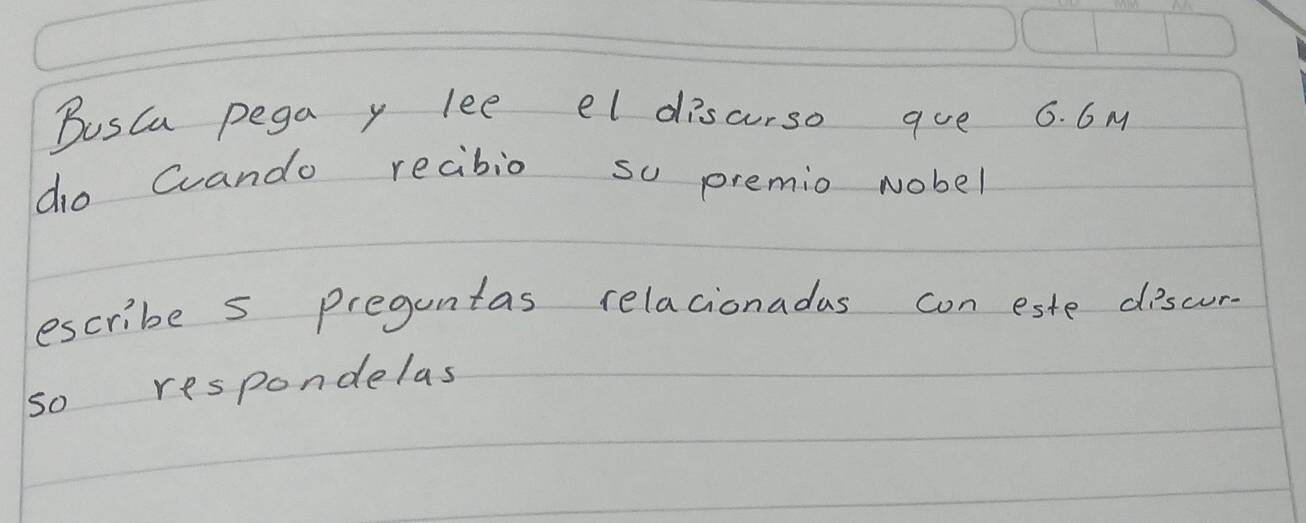 Busca pega y lee el discurso que G.GM
dio cuando recibio su premio Nobel
escribe 5 preguntas relacionadas con este discur-
so respondelas